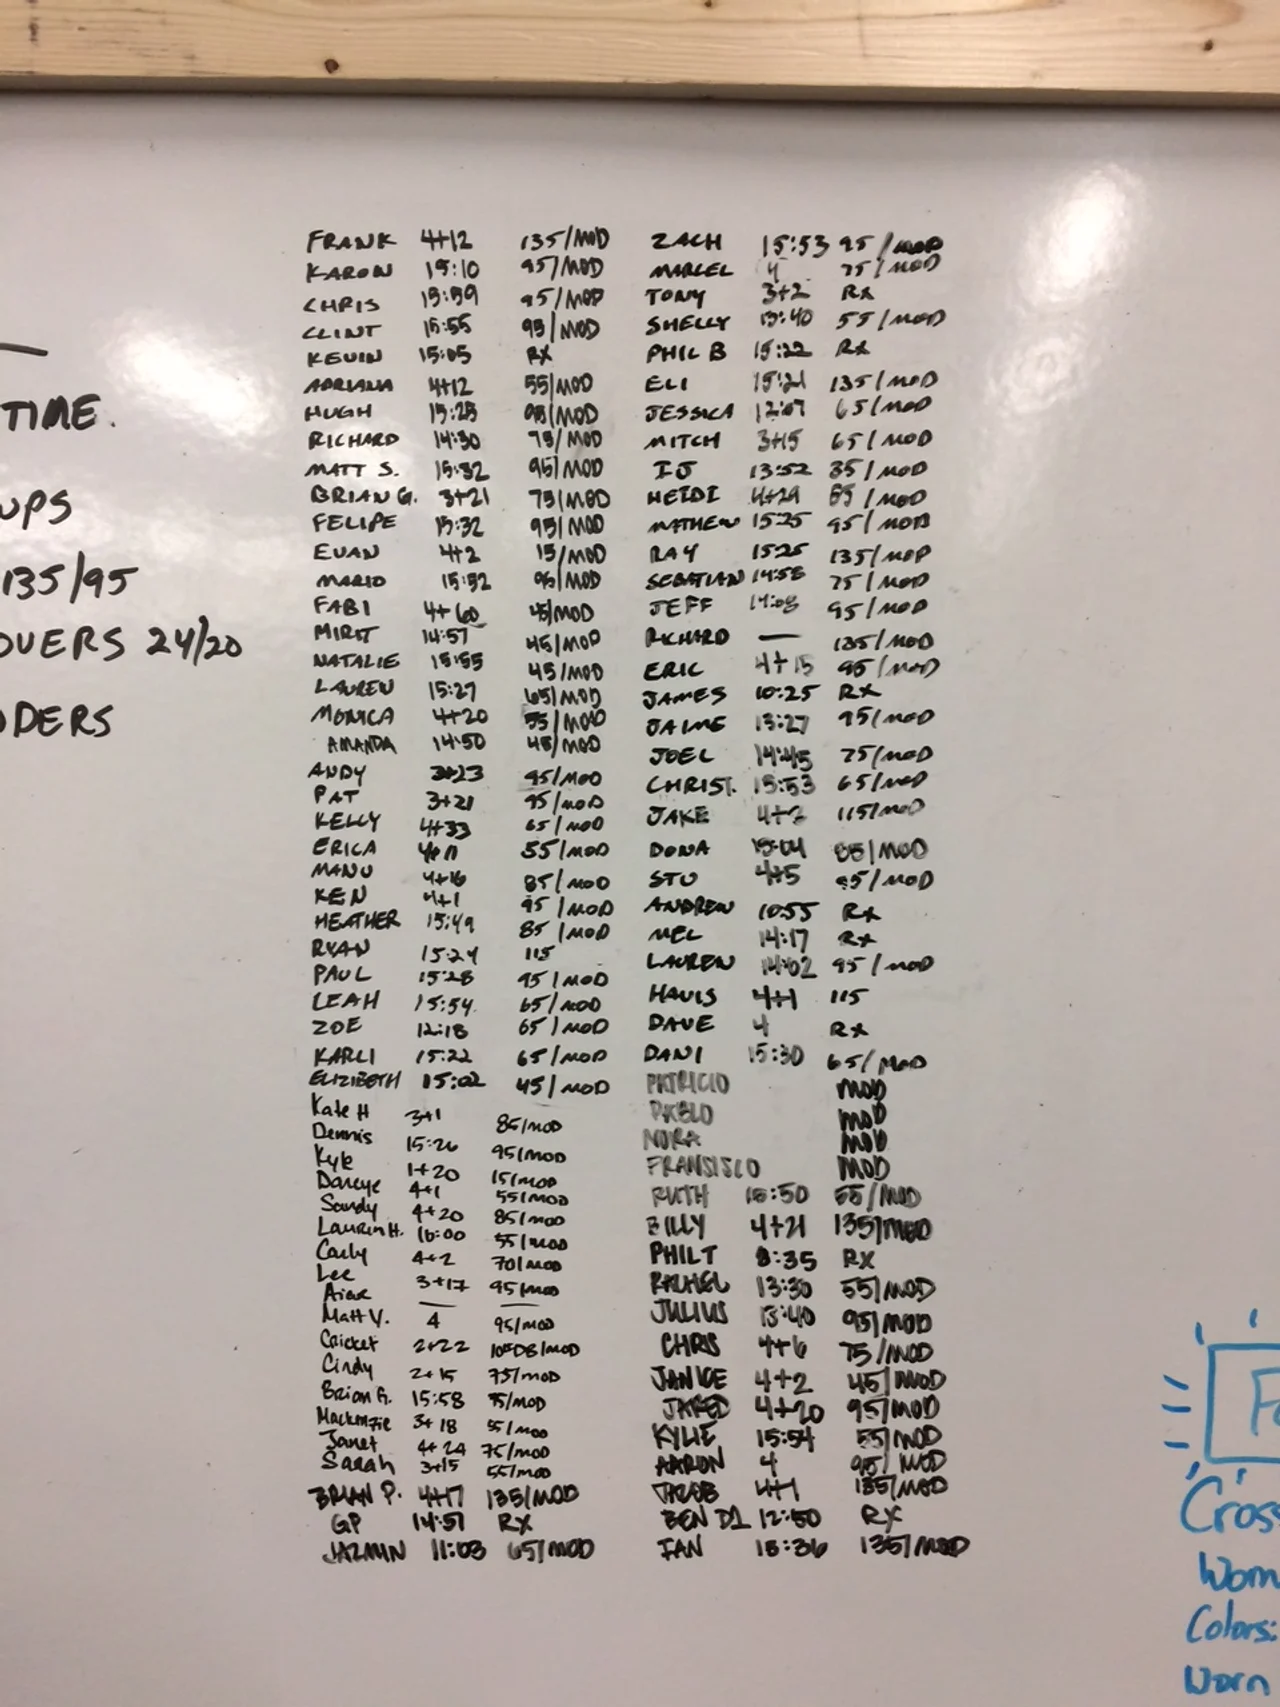 TIME.
UPS
135/95
OVERS 24/20
DERS
FRANK 4+12 135/MOD
KARON 15:10 95/MOD
CHRIS 15:59 95/MOD
CLINT 15:55 95/MOD
KEVIN 15:05 RX
ADRIANA 4+12 55/MOD
HUGH 15:25 95/MOD
RICHARD 14:30 75/MOD
MATT S. 15:32 95/MOD
BRIAN G. 3+21 75/MOD
FELIPE 15:32 95/MOD
EVAN 4+2 15/MOD
MARIO 15:52 95/MOD
FABI 4+60 45/MOD
MIRIT 14:57 45/MOD
NATALIE 15:55 45/MOD
LAUREN 15:27 65/MOD
MONICA 4+20 55/MOD
AMANDA 14:50 45/MOD
ANDY 3+23 95/MOD
PAT 3+21 95/MOD
KELLY 4+33 65/MOD
ERICA 55/MOD
MANU 4+16 85/MOD
KEN 4+1 95/MOD
HEATHER 15:49 85/MOD
RYAN 15:24 115
PAUL 15:28 95/MOD
LEAH 15:54 65/MOD
ZOE 12:18 65/MOD
KARLI 15:22 65/MOD
ELIZIBETH 15:02 45/MOD
Kate H 3+1 85/MOD
Dennis 15:26 95/MOD
Kyle 1+20 15/MOD
Darcye 4+1 55/MOD
Sandy 4+20 85/MOD
Laurin H. 16:00 55/MOD
Carly 4+2 70/MOD
Lee 3+17 95/MOD
— —
Matt V. 4 95/MOD
Cricket 2+22 /MOD
Cindy 2+15 75/MOD
Brian G. 15:58 75/MOD
Mackenzie 3+18 55/MOD
Janet 4+24 75/MOD
Sarah 3+15 55/MOD
BRIAN P. 4+17 135/MOD
GP 14:57 RX
JAZMIN 11:03 65/MOD
ZACH 15:53 95/MOD
MARCEL 4 75/MOD
TONY 3+2 RX
SHELLY 13:40 55/MOD
PHIL B 15:22 RX
ELI 15:21 135/MOD
JESSICA 12:07 65/MOD
MITCH 3+15 65/MOD
IJ 13:52 85/MOD
HEIDI 4+29 85/MOD
MATHEW 15:25 95/MOD
RAY 15:25 135/MOD
SEBATIAN 14:58 75/MOD
JEFF 14:08 95/MOD
RICHARD — 135/MOD
ERIC 4+15 95/MOD
JAMES 10:25 RX
JAIME 13:27 95/MOD
JOEL 14:45 75/MOD
CHRIST. 15:53 65/MOD
JAKE 4+2 115/MOD
DONA 15:04 85/MOD
STU 4+5 95/MOD
ANDREW 10:55 RX
MEL 14:17 RX
LAUREN 14:02 95/MOD
HAVIS 4+1 115
DAVE 4 RX
DANI 15:30 65/MOD
PATRICIO MOD
PABLO MOD
NORA MOD
FRANSISCO MOD
RUTH 15:50 55/MOD
BILLY 4+21 135/MOD
PHIL T 8:35 RX
RACHEL 13:30 55/MOD
JULIUS 13:40 95/MOD
CHRIS 4+6 75/MOD
JANICE 4+2 45/MOD
JARED 4+20 95/MOD
KYLIE 15:54 55/MOD
AARON 4 95/MOD
JACOB 4+1 135/MOD
BEN D1 12:50 RX
IAN 15:36 135/MOD
Fo
Cross
Wom
Colors:
Worn